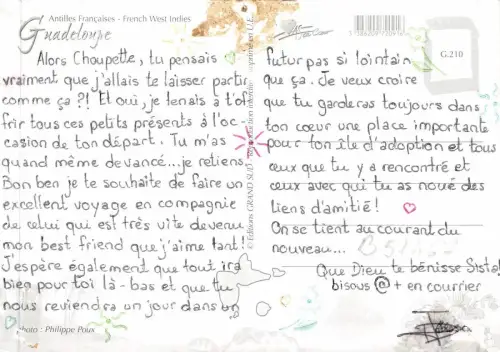 Antilles Françaises - French West Indies
Guadeloupe
Alors Choupette, tu pensais
vraiment que j'allais te laisser partir
comme ça ?! Et oui, je tenais à t'of
frir tous ces petits présents à l'oc-
casion de ton départ. Tu m'as
quand même devancé...je retiens.
Bon ben je te souhaite de faire un
excellent voyage en compagnie
de celui qui est très vite devenu
mon best friend que j'aime tant!
J'espère également que tout ira
bien pour toi là-bas et que tu
nous reviendra un jour dans un
Photo : Philippe Poux
© Editions GRAND SUD
G.210
futur pas si lointain
que ça. Je veux croire
que tu garderas toujours dans
ton cœur une place importante
pour ton île d'adoption et tous
ceux que tu y a rencontré et
ceux avec qui tu as noué des
liens d'amitié!
On se tient au courant du
nouveau...
Que Dieu te bénisse Sista!
bisous @ + en courrier